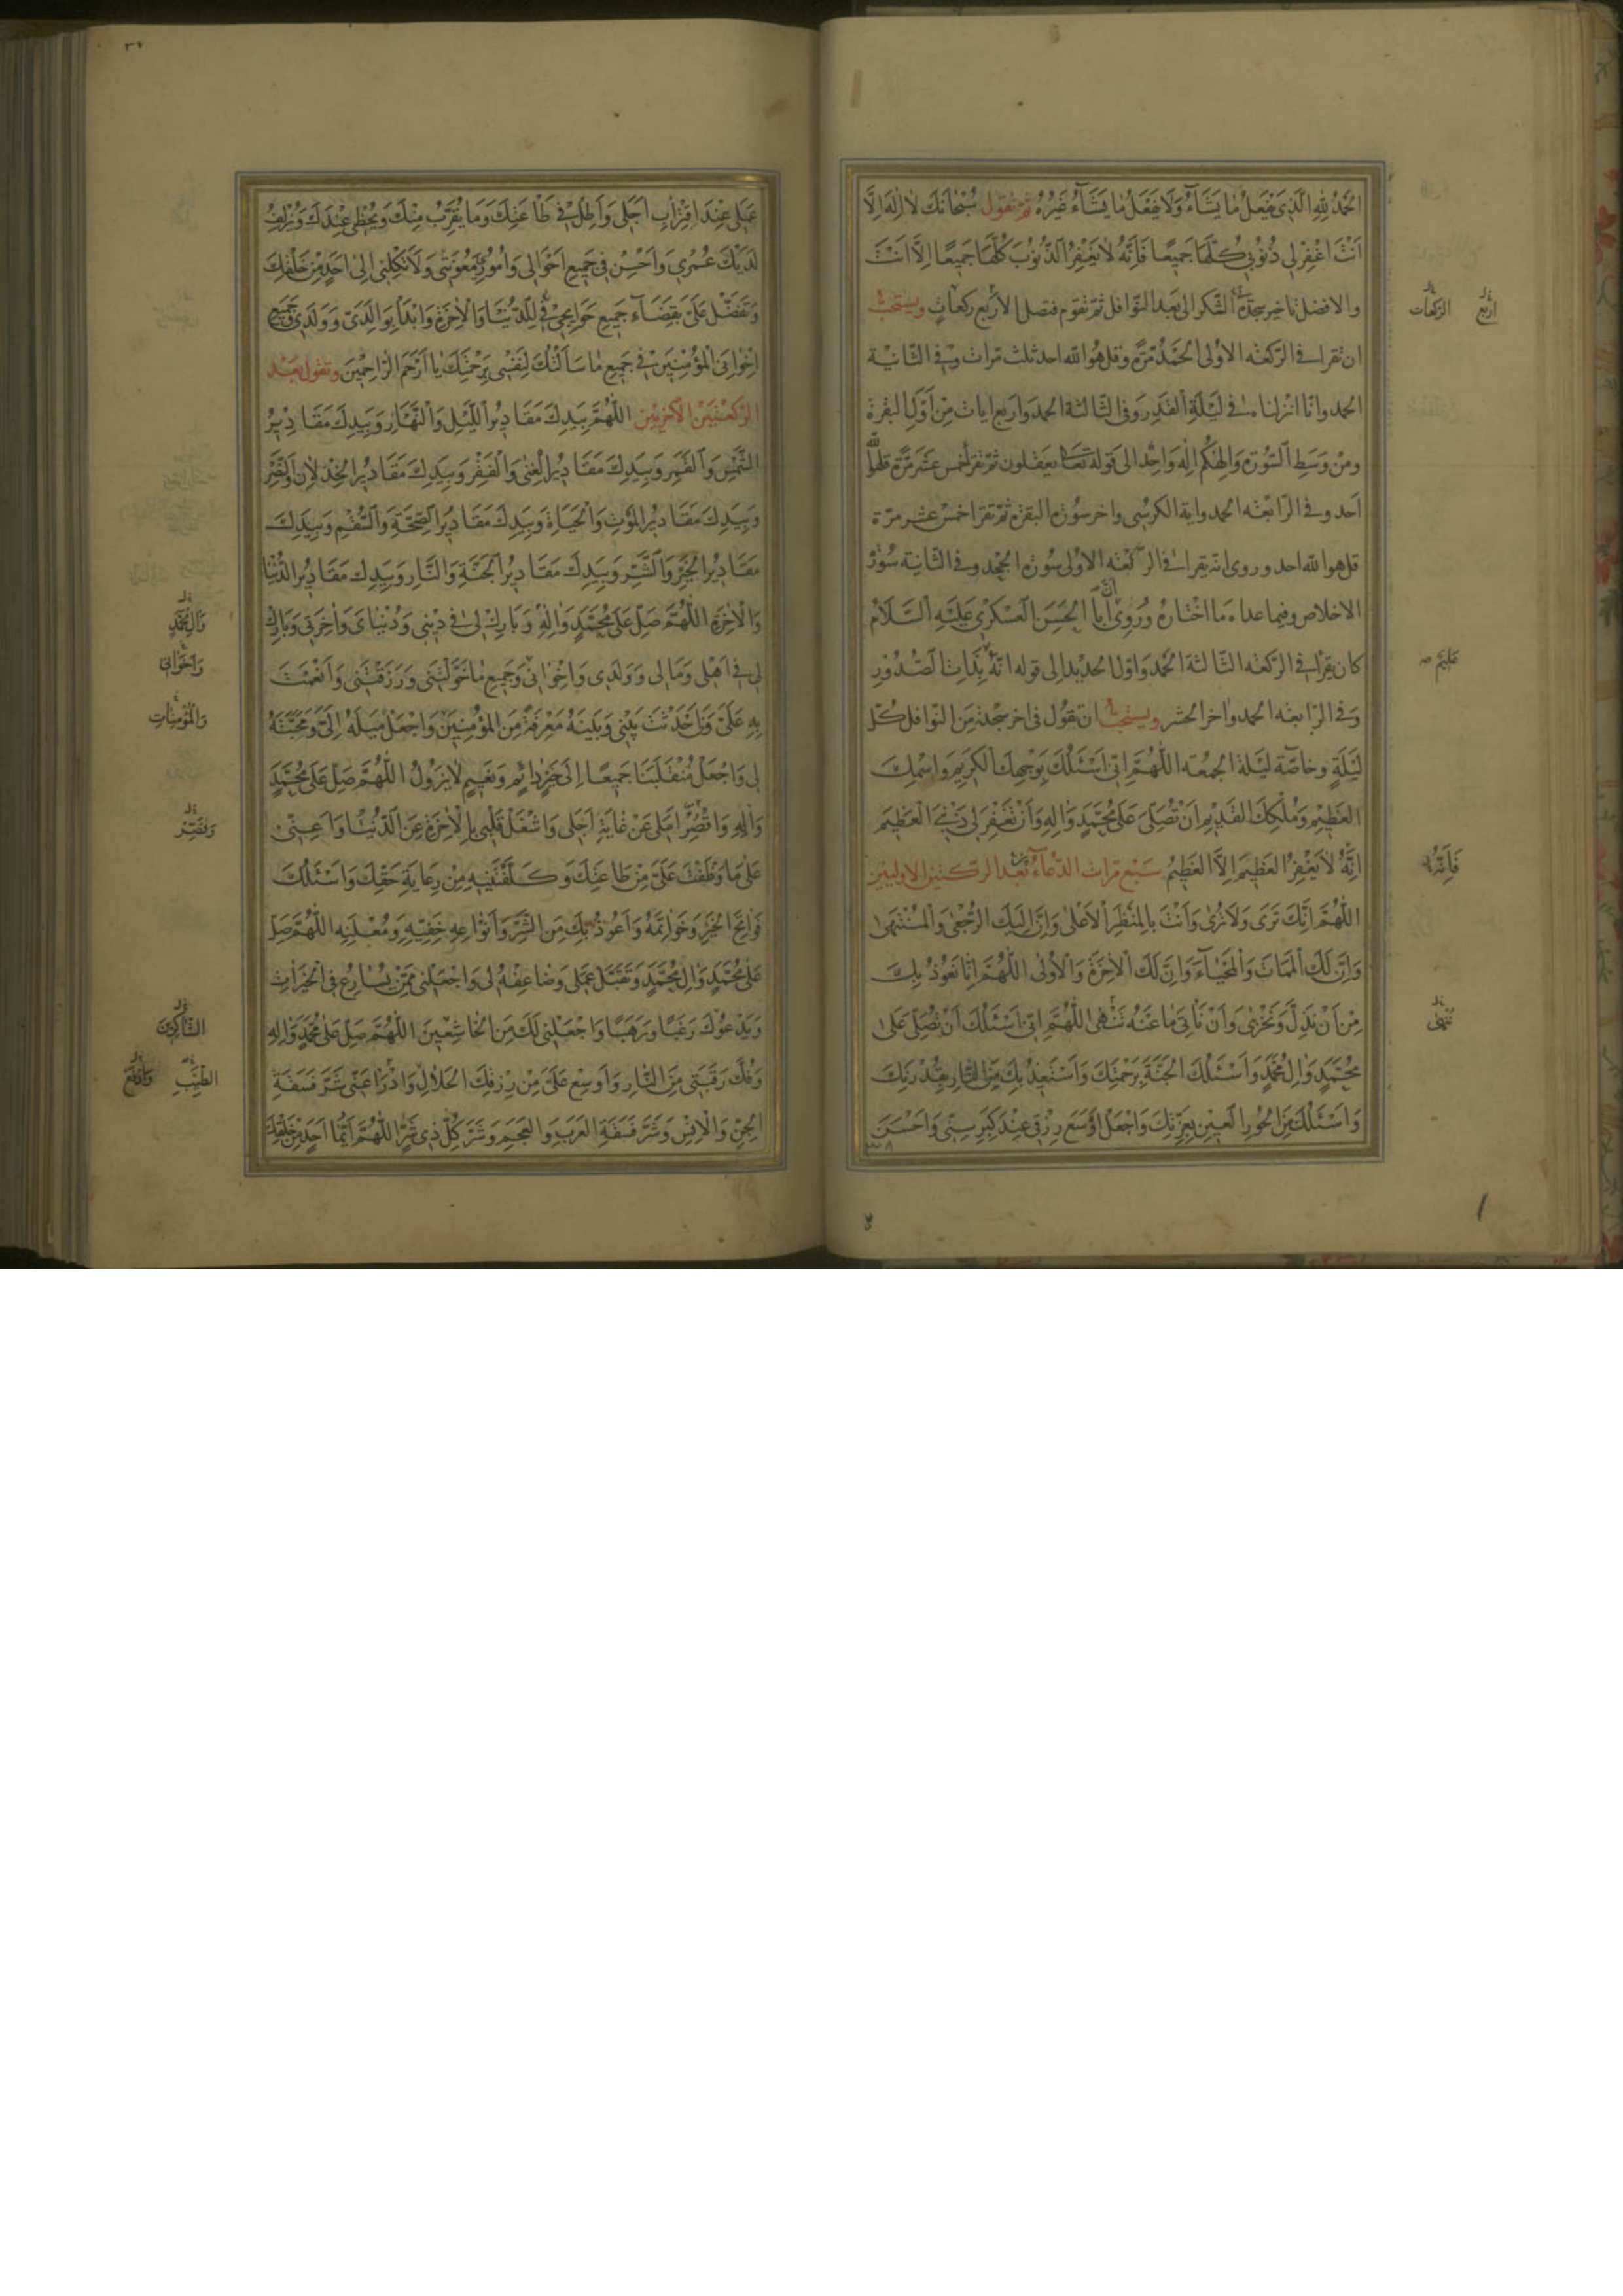 اَلْحَمْدُ لِلّٰهِ الَّذى يَفْعَلُ مٰا يَشٰآءُ وَلَا يَفْعَلُ مٰا يَشٰآءُ غَيْرُهُ ثم تقول سُبْحٰانَكَ لٰا اِلٰهَ اِلَّا
اَنْتَ اغْفِرْ لى ذُنُوبى كُلَّهٰا جَميعًا فَاِنَّهُ لٰا يَغْفِرُ الذُّنُوبَ كُلَّهٰا جَميعًا اِلَّا اَنْتَ
والافضل تاخير سجدة الشكر الى بعد النوافل ثم تقوم فتصل الاربع ركعات ويستحب
ان تقرا فى الركعه الاولى الحمد مرة وقل هو الله احد ثلث مرات وفى الثانية
الحمد وانا انزلناه فى ليلة القدر وفى الثالثة الحمد واربع ايات من اول البقرة
ومن وسط السورة والهكم اله واحد الى قوله تعالى يعقلون ثم تقرا خمس عشر مرة قل هو الله
احد وفى الرابعه الحمد واية الكرسى واخر سورة البقرة ثم تقرا خمس عشر مرة
قل هو الله احد وروى انه يقرا فى الركعه الاولى سورة الجحد وفى الثانية سورة
الاخلاص وفيما عداه ما اختاره وروى ان ابا الحسن العسكرى عليه السلام
كان يقرا فى الركعه الثالثة الحمد واول الحديد الى قوله انه بذات الصدور
وفى الرابعه الحمد واخر الحشر ويستحب ان تقول فى اخر سجدة من النوافل كل
ليلة وخاصة ليلة الجمعه اَللّٰهُمَّ اِنّى اَسْئَلُكَ بِوَجْهِكَ الْكَريمِ وَاسْمِكَ
الْعَظيمِ وَمُلْكِكَ الْقَديمِ اَنْ تُصَلِّىَ عَلٰى مُحَمَّدٍ وَاٰلِهِ وَاَنْ تَغْفِرَ لى ذَنْبِىَ الْعَظيمَ
اِنَّهُ لٰا يَغْفِرُ الْعَظيمَ اِلَّا الْعَظيمُ سبع مرات الدعاء بعد الركعتين الاوليين
اَللّٰهُمَّ اِنَّكَ تَرٰى وَلٰا تُرٰى وَاَنْتَ بِالْمَنْظَرِ الْاَعْلٰى وَاِنَّ اِلَيْكَ الرُّجْعٰى وَالْمُنْتَهٰى
وَاِنَّ لَكَ الْمَمٰاتَ وَالْمَحْيٰا وَاِنَّ لَكَ الْاٰخِرَةَ وَالْاُولٰى اَللّٰهُمَّ اِنّٰا نَعُوذُ بِكَ
مِنْ اَنْ نَذِلَّ وَنَخْزٰى وَاَنْ نَأْتِىَ مٰا عَنْهُ تَنْهٰى اَللّٰهُمَّ اِنّى اَسْئَلُكَ اَنْ تُصَلِّىَ عَلٰى
مُحَمَّدٍ وَاٰلِ مُحَمَّدٍ وَاَسْئَلُكَ الْجَنَّةَ بِرَحْمَتِكَ وَاَسْتَعيذُ بِكَ مِنَ النّٰارِ بِقُدْرَتِكَ
وَاَسْئَلُكَ مِنَ الْحُورِ الْعينِ بِعِزَّتِكَ وَاجْعَلْ اَوْسَعَ رِزْقى عِنْدَ كِبَرِ سِنّى وَاَحْسَنَ
اربع
الركعات
عليم
فانه
تنهى
عَمَلى عِنْدَ اقْتِرٰابِ اَجَلى وَاَطِلْ فى طٰاعَتِكَ وَمٰا يُقَرِّبُ مِنْكَ وَيُحْظى عِنْدَكَ وَيُزْلِفُ
لَدَيْكَ عُمْرى وَاَحْسِنْ فى جَميعِ اَحْوٰالى وَاُمُورى مَعُونَتى وَلٰا تَكِلْنى اِلٰى اَحَدٍ مِنْ خَلْقِكَ
وَتَفَضَّلْ عَلَىَّ بِقَضٰآءِ جَميعِ حَوٰائِجى لِلدُّنْيٰا وَالْاٰخِرَةِ وَابْدَأْ بِوٰالِدَىَّ وَوَلَدى وَجَميعِ
اِخْوٰانِىَ الْمُؤْمِنينَ فى جَميعِ مٰا سَاَلْتُكَ لِنَفْسى بِرَحْمَتِكَ يٰا اَرْحَمَ الرّٰاحِمينَ وتقول بعد
الركعتين الاخريين اَللّٰهُمَّ بِيَدِكَ مَقٰاديرُ اللَّيْلِ وَالنَّهٰارِ وَبِيَدِكَ مَقٰاديرُ
الشَّمْسِ وَالْقَمَرِ وَبِيَدِكَ مَقٰاديرُ الْغِنٰى وَالْفَقْرِ وَبِيَدِكَ مَقٰاديرُ الْخِذْلٰانِ وَالنَّصْرِ
وَبِيَدِكَ مَقٰاديرُ الْمَوْتِ وَالْحَيٰاةِ وَبِيَدِكَ مَقٰاديرُ الصِّحَّةِ وَالسُّقْمِ وَبِيَدِكَ
مَقٰاديرُ الْخَيْرِ وَالشَّرِّ وَبِيَدِكَ مَقٰاديرُ الْجَنَّةِ وَالنّٰارِ وَبِيَدِكَ مَقٰاديرُ الدُّنْيٰا
وَالْاٰخِرَةِ اَللّٰهُمَّ صَلِّ عَلٰى مُحَمَّدٍ وَاٰلِهِ وَبٰارِكْ لى فى دينى وَدُنْيٰاىَ وَاٰخِرَتى وَبٰارِكْ
لى فى اَهْلى وَمٰالى وَوَلَدى وَاِخْوٰانى وَجَميعِ مٰا خَوَّلْتَنى وَرَزَقْتَنى وَاَنْعَمْتَ
بِهِ عَلَىَّ وَمَنْ اَحْدَثْتَ بَيْنى وَبَيْنَهُ مَعْرِفَةً مِنَ الْمُؤْمِنينَ وَاجْعَلْ مَيْلَهُ اِلَىَّ وَمَحَبَّتَهُ
لى وَاجْعَلْ مُنْقَلَبَنٰا جَميعًا اِلٰى خَيْرٍ دٰائِمٍ وَنَعيمٍ لٰا يَزُولُ اَللّٰهُمَّ صَلِّ عَلٰى مُحَمَّدٍ
وَاٰلِهِ وَاقْصُرْ اَمَلى عَنْ غٰايَةِ اَجَلى وَاشْغَلْ قَلْبى بِالْاٰخِرَةِ عَنِ الدُّنْيٰا وَاَعِنّى
عَلٰى مٰا وَظَّفْتَ عَلَىَّ مِنْ طٰاعَتِكَ وَكَلَّفْتَنيهِ مِنْ رِعٰايَةِ حَقِّكَ وَاَسْئَلُكَ
فَوٰاتِحَ الْخَيْرِ وَخَوٰاتِمَهُ وَاَعُوذُ بِكَ مِنَ الشَّرِّ وَاَنْوٰاعِهِ خَفِيِّهِ وَمُعْلَنِهِ اَللّٰهُمَّ صَلِّ
عَلٰى مُحَمَّدٍ وَاٰلِ مُحَمَّدٍ وَتَقَبَّلْ عَمَلى وَضٰاعِفْهُ لى وَاجْعَلْنى مِمَّنْ يُسٰارِعُ فِى الْخَيْرٰاتِ
وَيَدْعُوكَ رَغَبًا وَرَهَبًا وَاجْعَلْنى لَكَ مِنَ الْخٰاشِعينَ اَللّٰهُمَّ صَلِّ عَلٰى مُحَمَّدٍ وَاٰلِهِ
وَفُكَّ رَقَبَتى مِنَ النّٰارِ وَاَوْسِعْ عَلَىَّ مِنْ رِزْقِكَ الْحَلٰالِ وَادْرَأْ عَنّى شَرَّ فَسَقَةِ
الْجِنِّ وَالْاِنْسِ وَشَرَّ فَسَقَةِ الْعَرَبِ وَالْعَجَمِ وَشَرَّ كُلِّ ذى شَرٍّ اَللّٰهُمَّ اَيُّمٰا اَحَدٍ مِنْ خَلْقِكَ
وَاٰلِ مُحَمَّدٍ
وَاِخْوٰانى
وَالْمُؤْمِنٰاتِ
وَقَصِّرْ
الشّٰاكِرينَ
الطَّيِّبِ